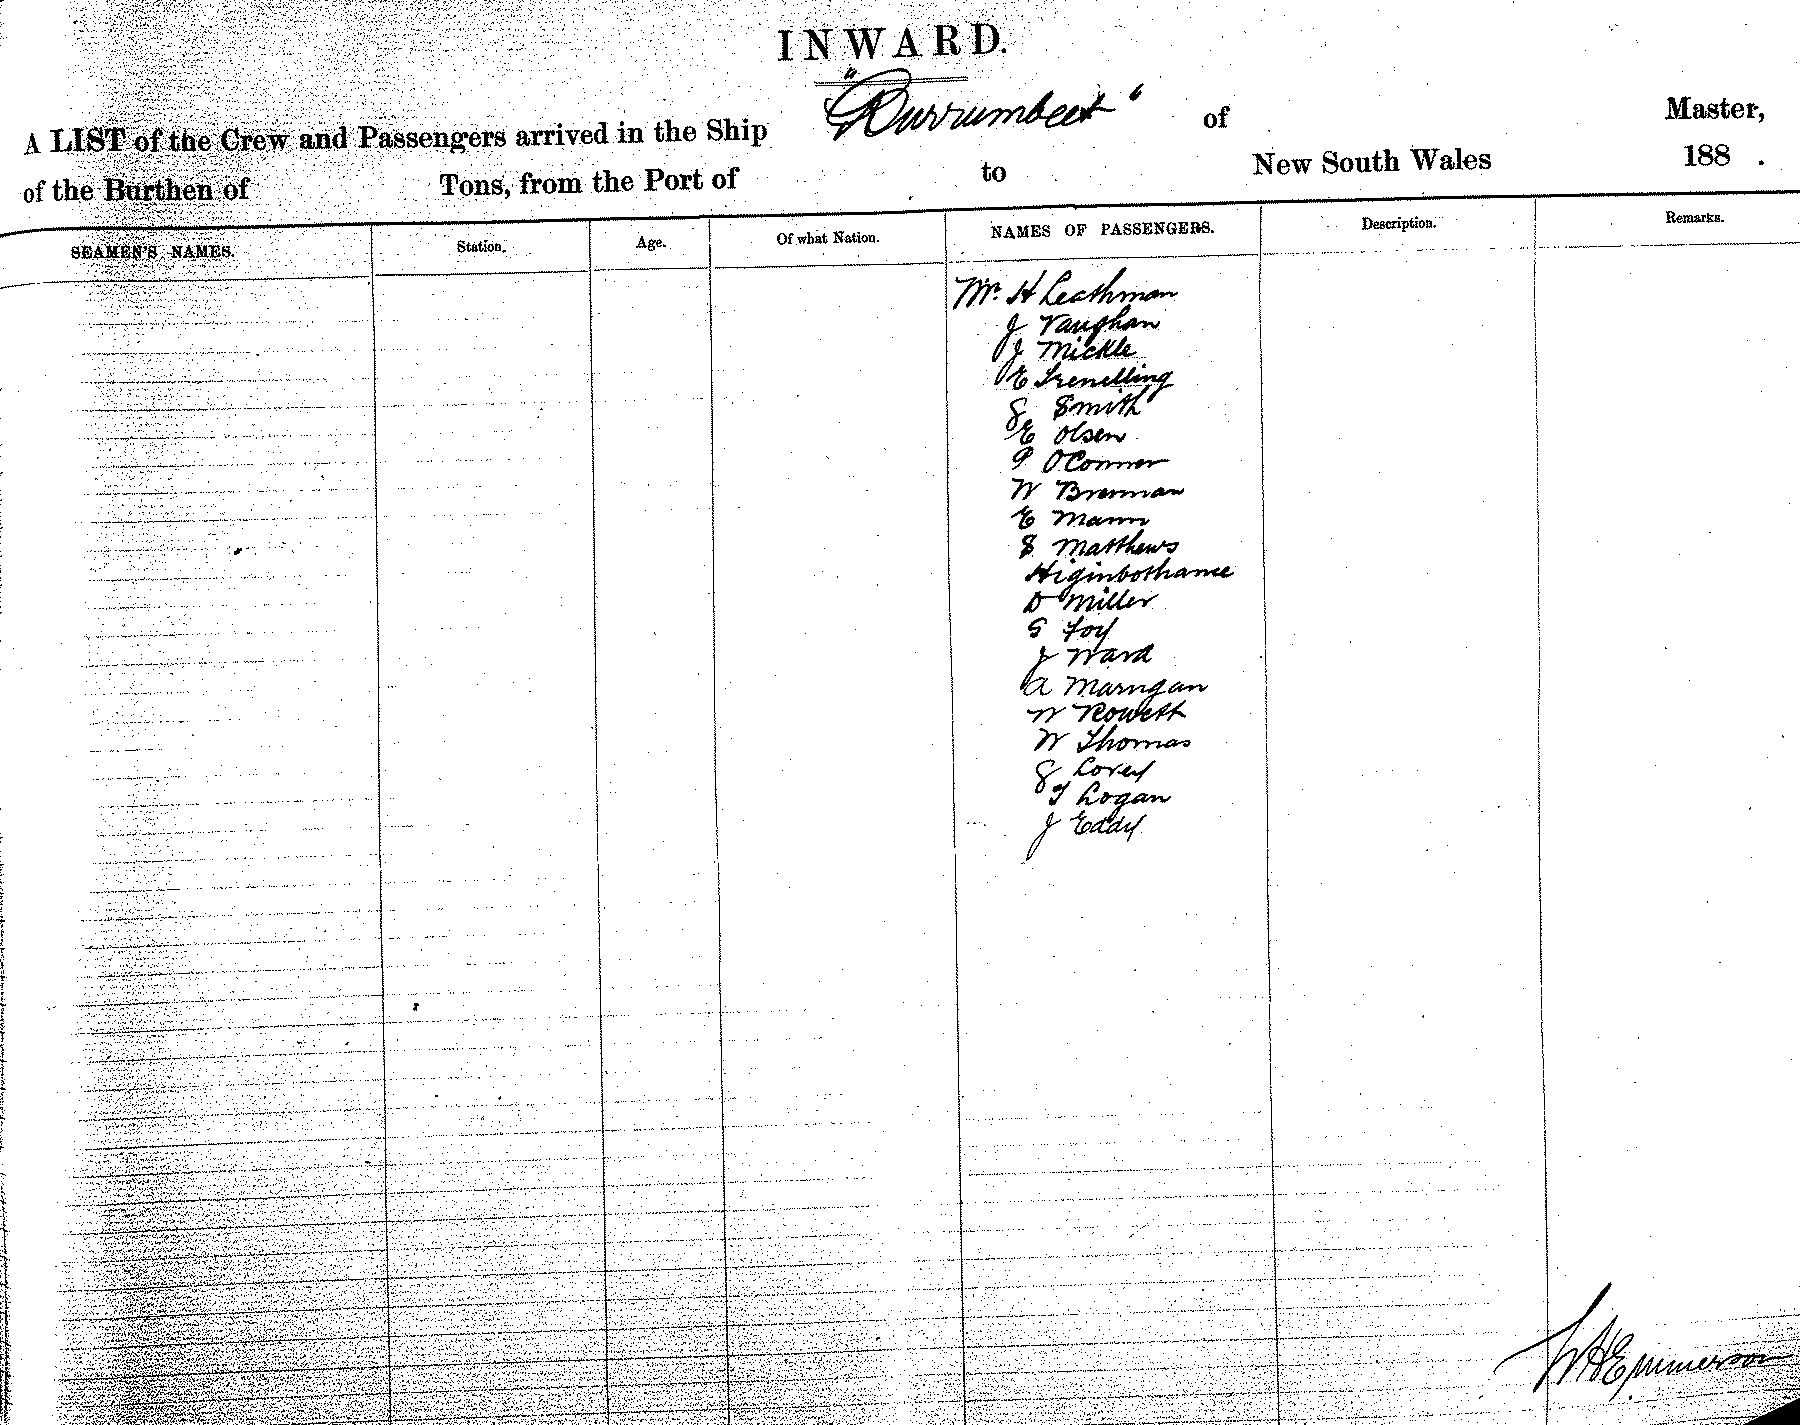 INWARD.
A LIST of the Crew and Passengers arrived in the Ship "Burrumbeet" of Master,
of the Burthen of Tons, from the Port of to New South Wales 188 .
SEAMEN'S NAMES. Station. Age. Of what Nation. NAMES OF PASSENGERS. Description. Remarks.
Mr. H Leathman
J Vaughan
J Mickle
E Trenelling
G Smith
E Olsen
P O'Conner
W Brennan
E Mann
S Matthews
Higinbothame
D Miller
S Foy
J Ward
A Marngan
W Rowett
W Thomas
G Lovey
T Logan
J Eddy
WHEmmerson